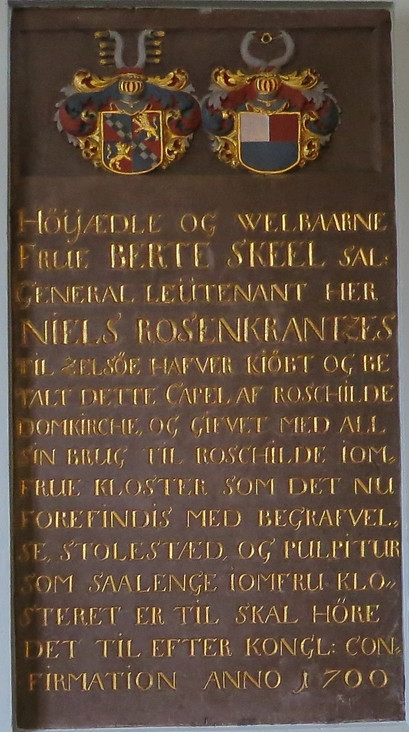 HÖIJÆDLE OG WELBAARNE
FRUE BERTE SKEEL SAL:
GENERAL LEÜTENANT HER
NIELS ROSENKRANTZES
TIL ZELSÖE HAFVER KIÖBT OG BE
TALT DETTE CAPEL AF ROSCHILDE
DOMKIRCHE, OG GIFVET MED ALL
SIN BRUG TIL ROSCHILDE IOM,,
FRUE KLOSTER SOM DET NU
FOREFINDIS MED BEGRAFVEL,,
SE, STOLESTÆD, OG PULPITUR
SOM SAALENGE IOMFRU KLO,,
STERET ER TIL SKAL HÖRE
DET TIL EFTER KONGL: CON,,
FIRMATION ANNO 1700